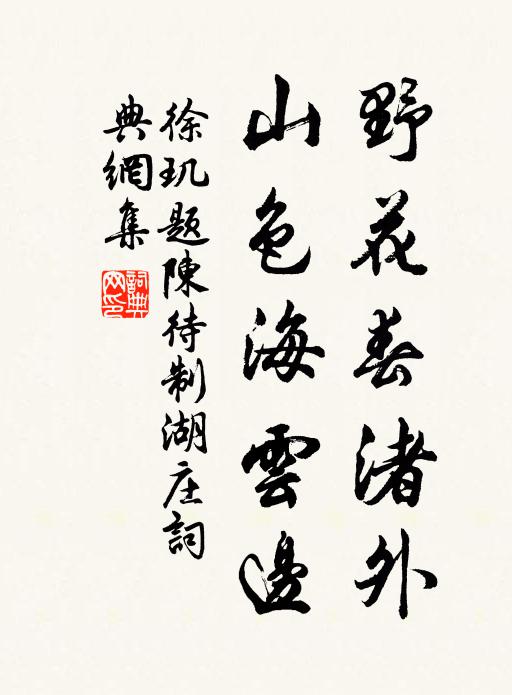 野花春渚外
山色海雲邊
徐玑题陳待制湖庄詞
典網集
詞典
网印